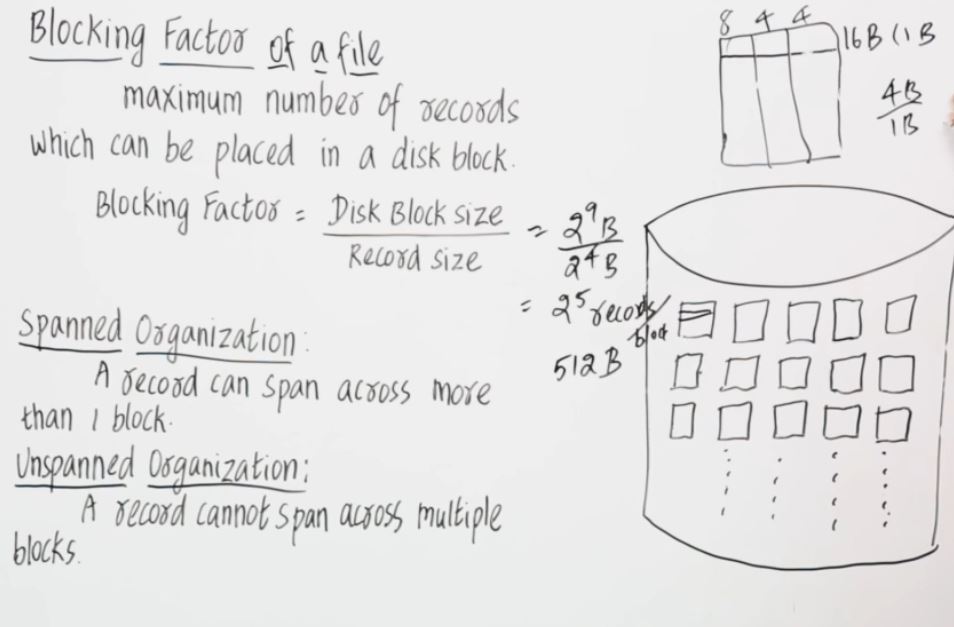 Blocking Factor of a file
maximum number of records
which can be placed in a disk block.
Blocking Factor = Disk Block size
Record size
= 2⁹B
2⁴B
= 2⁵ records/
block
512B
Spanned Organization:
A record can span across more
than 1 block.
Unspanned Organization:
A record cannot span across multiple
blocks.
8 4 4
16B (1B
4B
1B